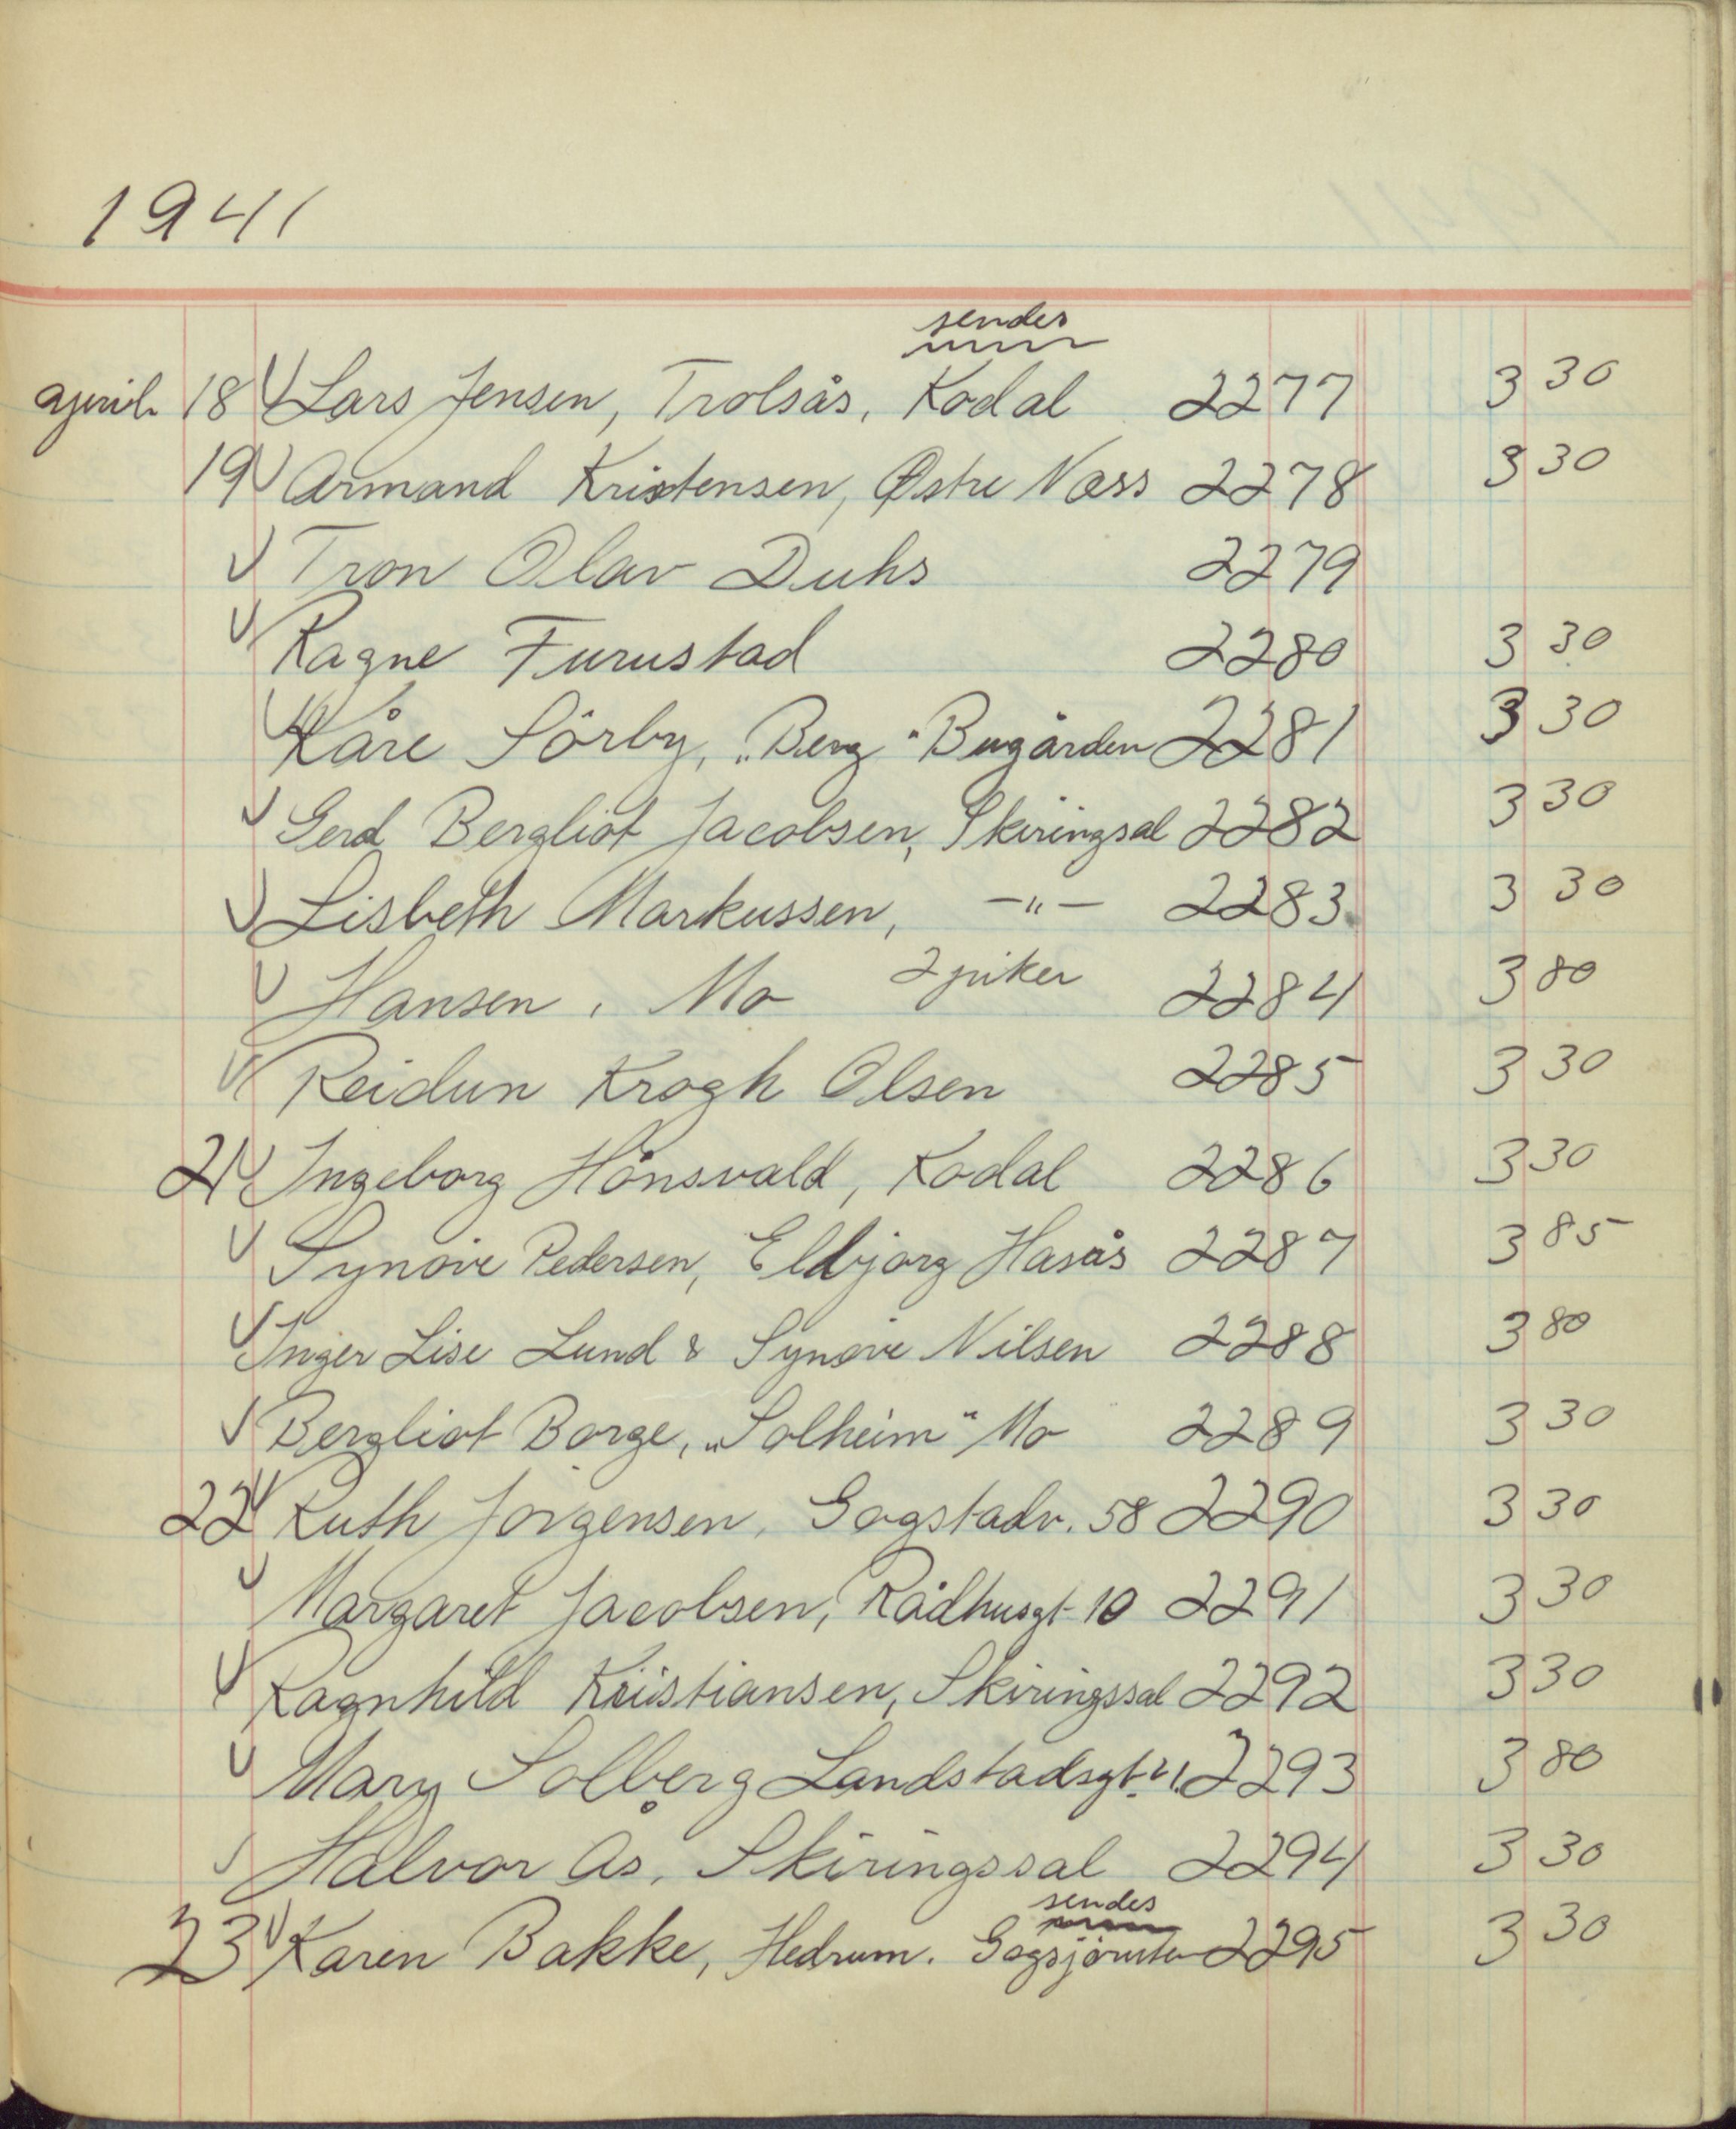 1941
sendes
april. 18 Lars Jensen, Trolsås, Kodal 2277 3 30
19 Armand Kristensen, Østre Næss 2278 3 30
Tron Olav Duhs 2279
Ragne Furustad 2280 3 30
Kåre Sörby, „Berg" Bugården 2281 3 30
Gerd Bergliot Jacobsen, Skiringsal 2282 3 30
Lisbeth Markussen, -"- 2283 3 30
Hansen, Mo 2 piker 2284 3 80
Reidun Krogh Olsen 2285 3 30
21 Ingeborg Hånsvald, Kodal 2286 3 30
Synøve Pedersen, Eldbjørg Hasås 2287 3 85
Inger Lise Lund & Synøve Nilsen 2288 3 80
Bergliot Borge, „Solheim" Mo 2289 3 30
22 Ruth Jørgensen, Gogstadv. 58 2290 3 30
Margaret Jacobsen, Rådhusgt 10 2291 3 30
Ragnhild Kristiansen, Skiringssal 2292 3 30
Mary Solberg Landstadsgt. 21. 2293 3 80
Halvor Ås, Skiringssal 2294 3 30
sendes
23 Karen Bakke, Hedrum. 2295 3 30